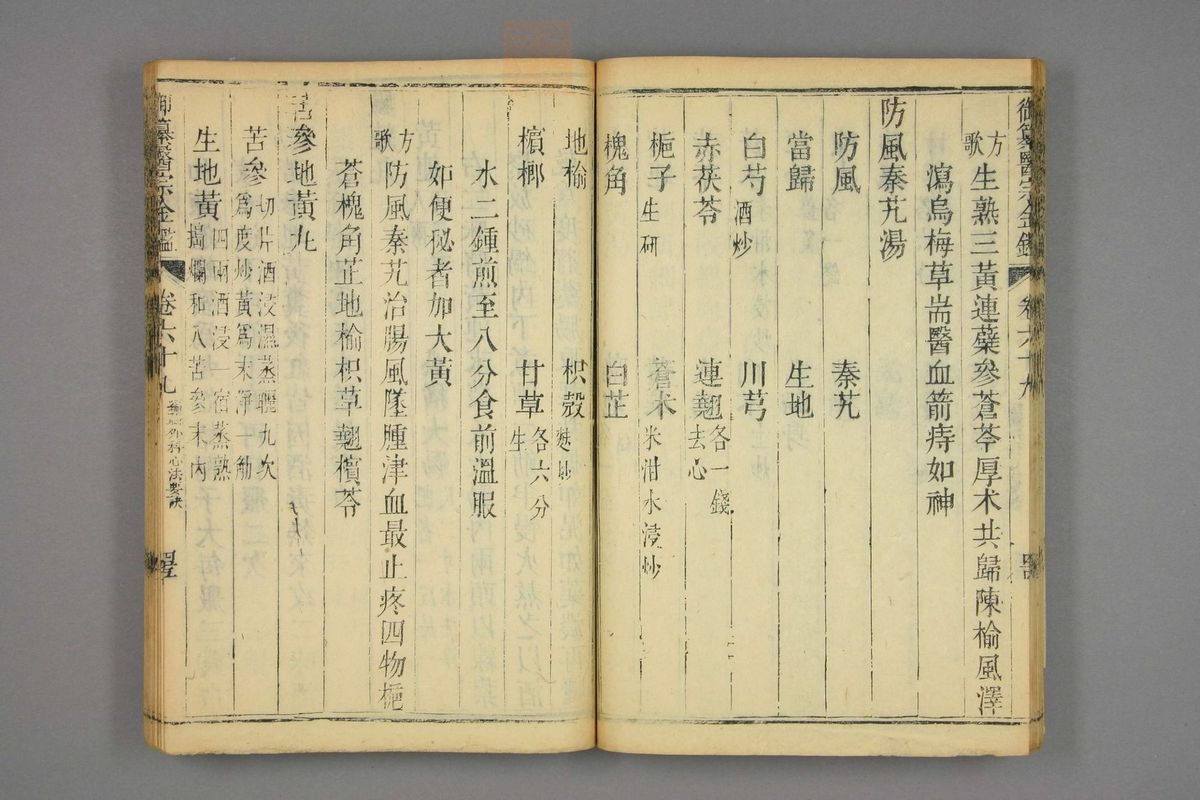 御纂醫宗金鑑 卷六十九
方歌 生熟三黃連蘗參蒼芩厚朮共歸陳榆風澤
瀉烏梅草耑醫血箭痔如神
防風秦艽湯
防風 秦艽
當歸 生地
白芍酒炒 川芎
赤茯苓 連翹各一錢去心
梔子生研 蒼朮米泔水浸炒
槐角 白芷
地榆 枳殼麩炒
檳榔 甘草各六分生
水二鍾煎至八分食前溫服
如便秘者加大黃
方歌 防風秦艽治腸風墜腫津血最止疼四物梔
蒼槐角芷地榆枳草翹檳苓
苦參地黃丸
苦參切片酒浸濕蒸曬九次為度炒黃為末淨一觔
生地黃四兩酒浸一宿蒸熟搗爛和入苦參末內
御纂醫宗金鑑 卷六十九 編輯外科心法要訣